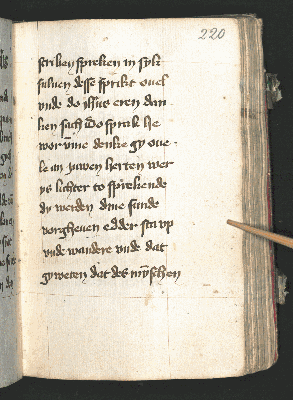 220
scribenspreken in sylf
suluen desse sprikt ouel
vnde do ihus eren dan
ken sach Do sprak he
wor vme denke gy oue
le an juwen herten wer
ys lichter to sprekende
dy werden dine sunde
vorgheuen edder sta vp
vnde wandere vnde dat
gy weten dat des mÿschen